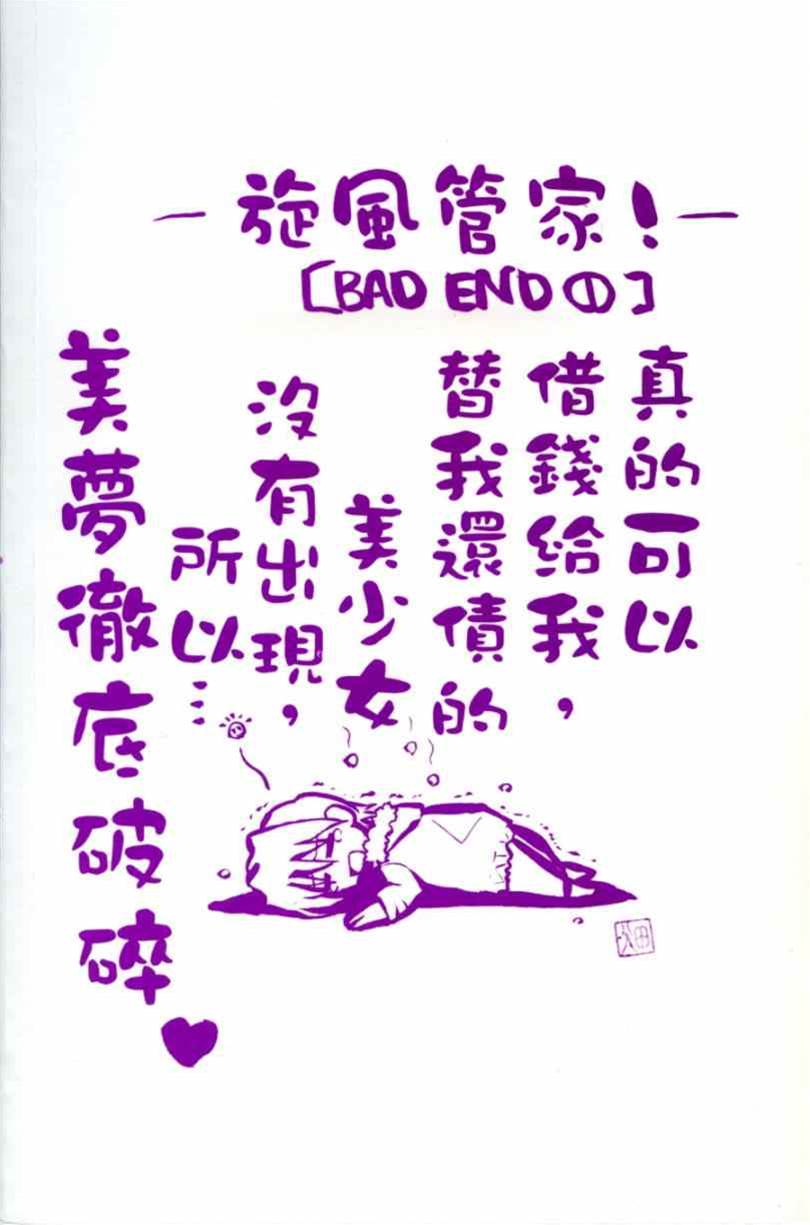 －旋風管家！－
［BAD END ①］
真的可以
借錢給我，
替我還債的
美少女
沒有出現，
所以……
美夢徹底破碎♥
畑